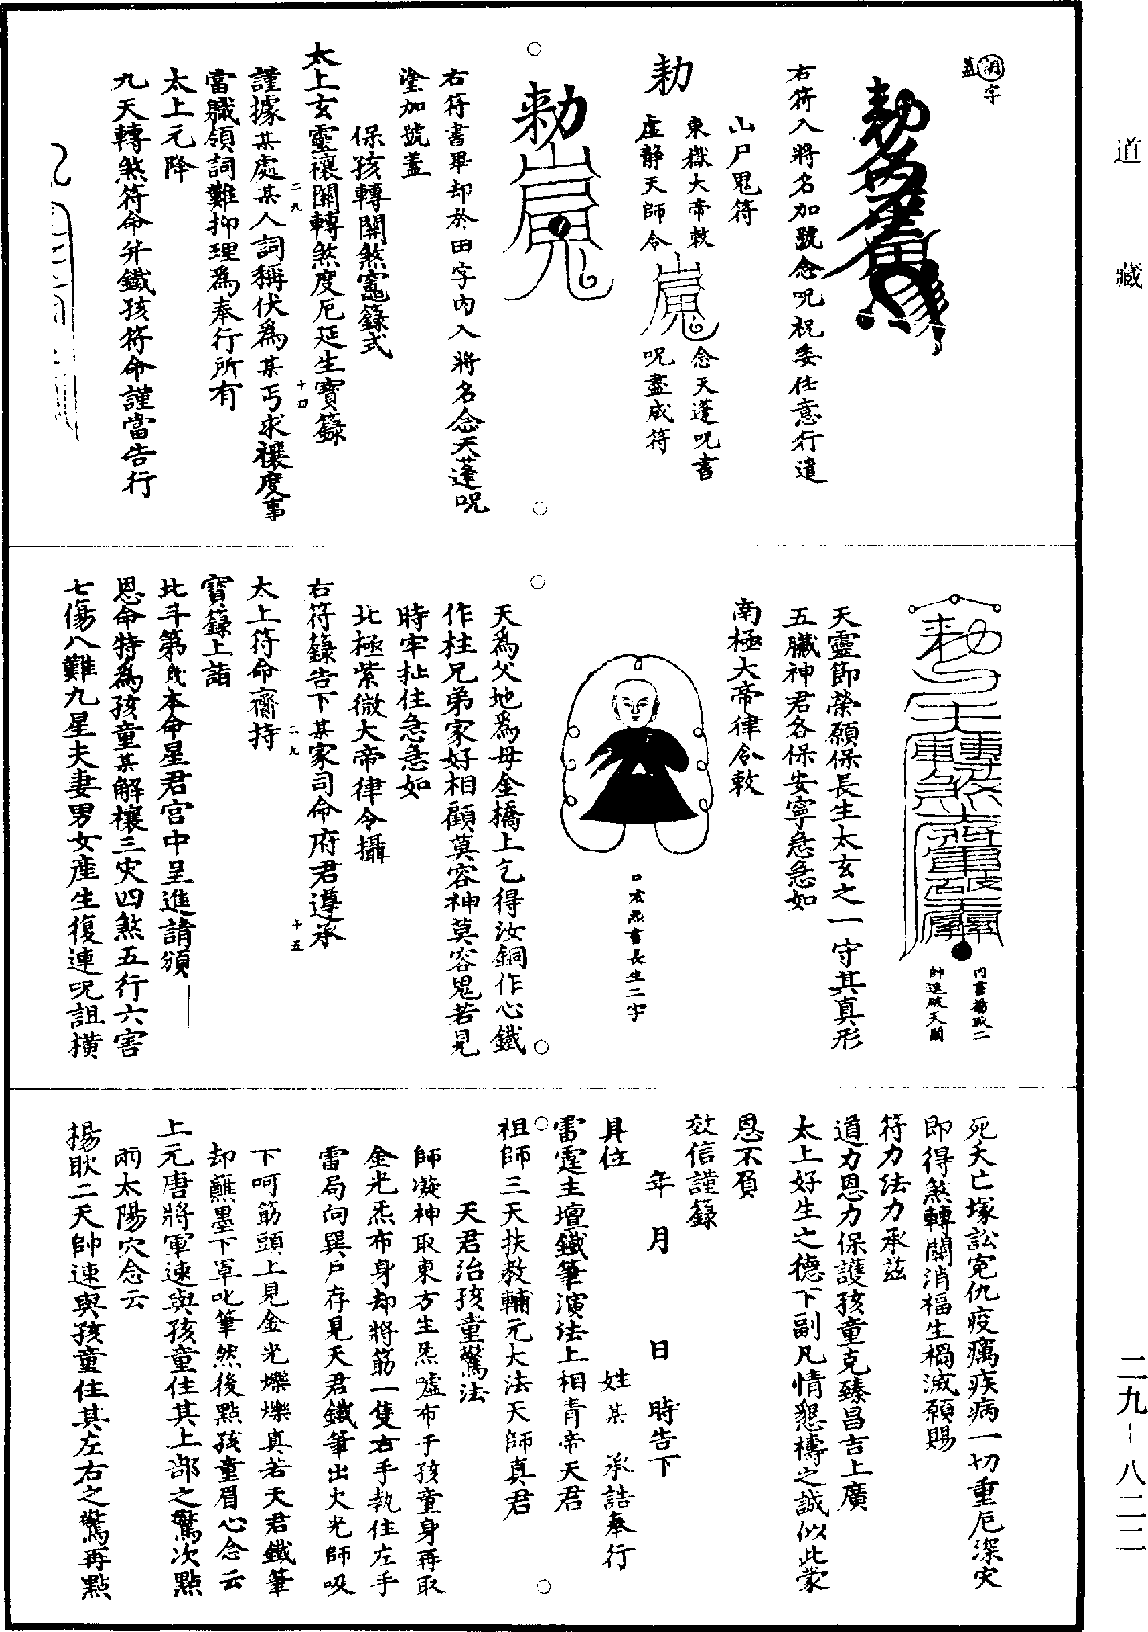 道藏
二九–八二二
右符入將名加號念呪祝委任意行遣
山尸鬼符
東嶽大帝敕
虛靜天師令
念天蓬呪書
呪盡成符
右符書畢却於田字內入將名念天蓬呪
塗加號蓋
保孩轉關煞竈籙式
太上玄靈禳關轉煞度厄延生寶籙
謹據某處某人詞稱伏爲某丐求禳度事
當職領詞難抑理爲奉行所有
太上元降
九天轉煞符命并鐵孩符命謹當告行
內書楊耿二
帥速破天關
天靈節榮願保長生太玄之一守其真形
五臟神君各保安寧急急如
南極大帝律令敕
天爲父地爲母金橋上乞得汝銅作心鐵
作柱兄弟家好相顧莫容神莫容鬼若見
時牢扯住急急如
北極紫微大帝律令攝
右符籙告下某家司命府君遵承
太上符命齎持
寶籙上詣
北斗第氏本命星君宮中呈進請頒
恩命特爲孩童某解禳三灾四煞五行六害
七傷八難九星夫妻男女產生復連呪詛橫
死夭亡塚訟寃仇疫癘疾病一切重厄深灾
即得煞轉關消福生禍滅願賜
符力法力承茲
道力恩力保護孩童克臻昌吉上廣
太上好生之德下副凡情懇禱之誠似此蒙
恩不負
效信謹籙
年 月 日 時告下
具位 姓某 承誥奉行
雷霆主壇鐵筆演法上相青帝天君
祖師三天扶教輔元大法天師真君
天君治孩童驚法
師凝神取東方生炁噓布于孩童身再取
金光炁布身却將筯一隻右手執住左手
雷局向巽戶存見天君鐵筆出火光師吸
下呵筯頭上見金光爍爍真若天君鐵筆
却蘸墨下罩叱筆然後點孩童眉心念云
上元唐將軍速與孩童住其上部之驚次點
兩太陽穴念云
楊耿二天帥速與孩童住其左右之驚再點